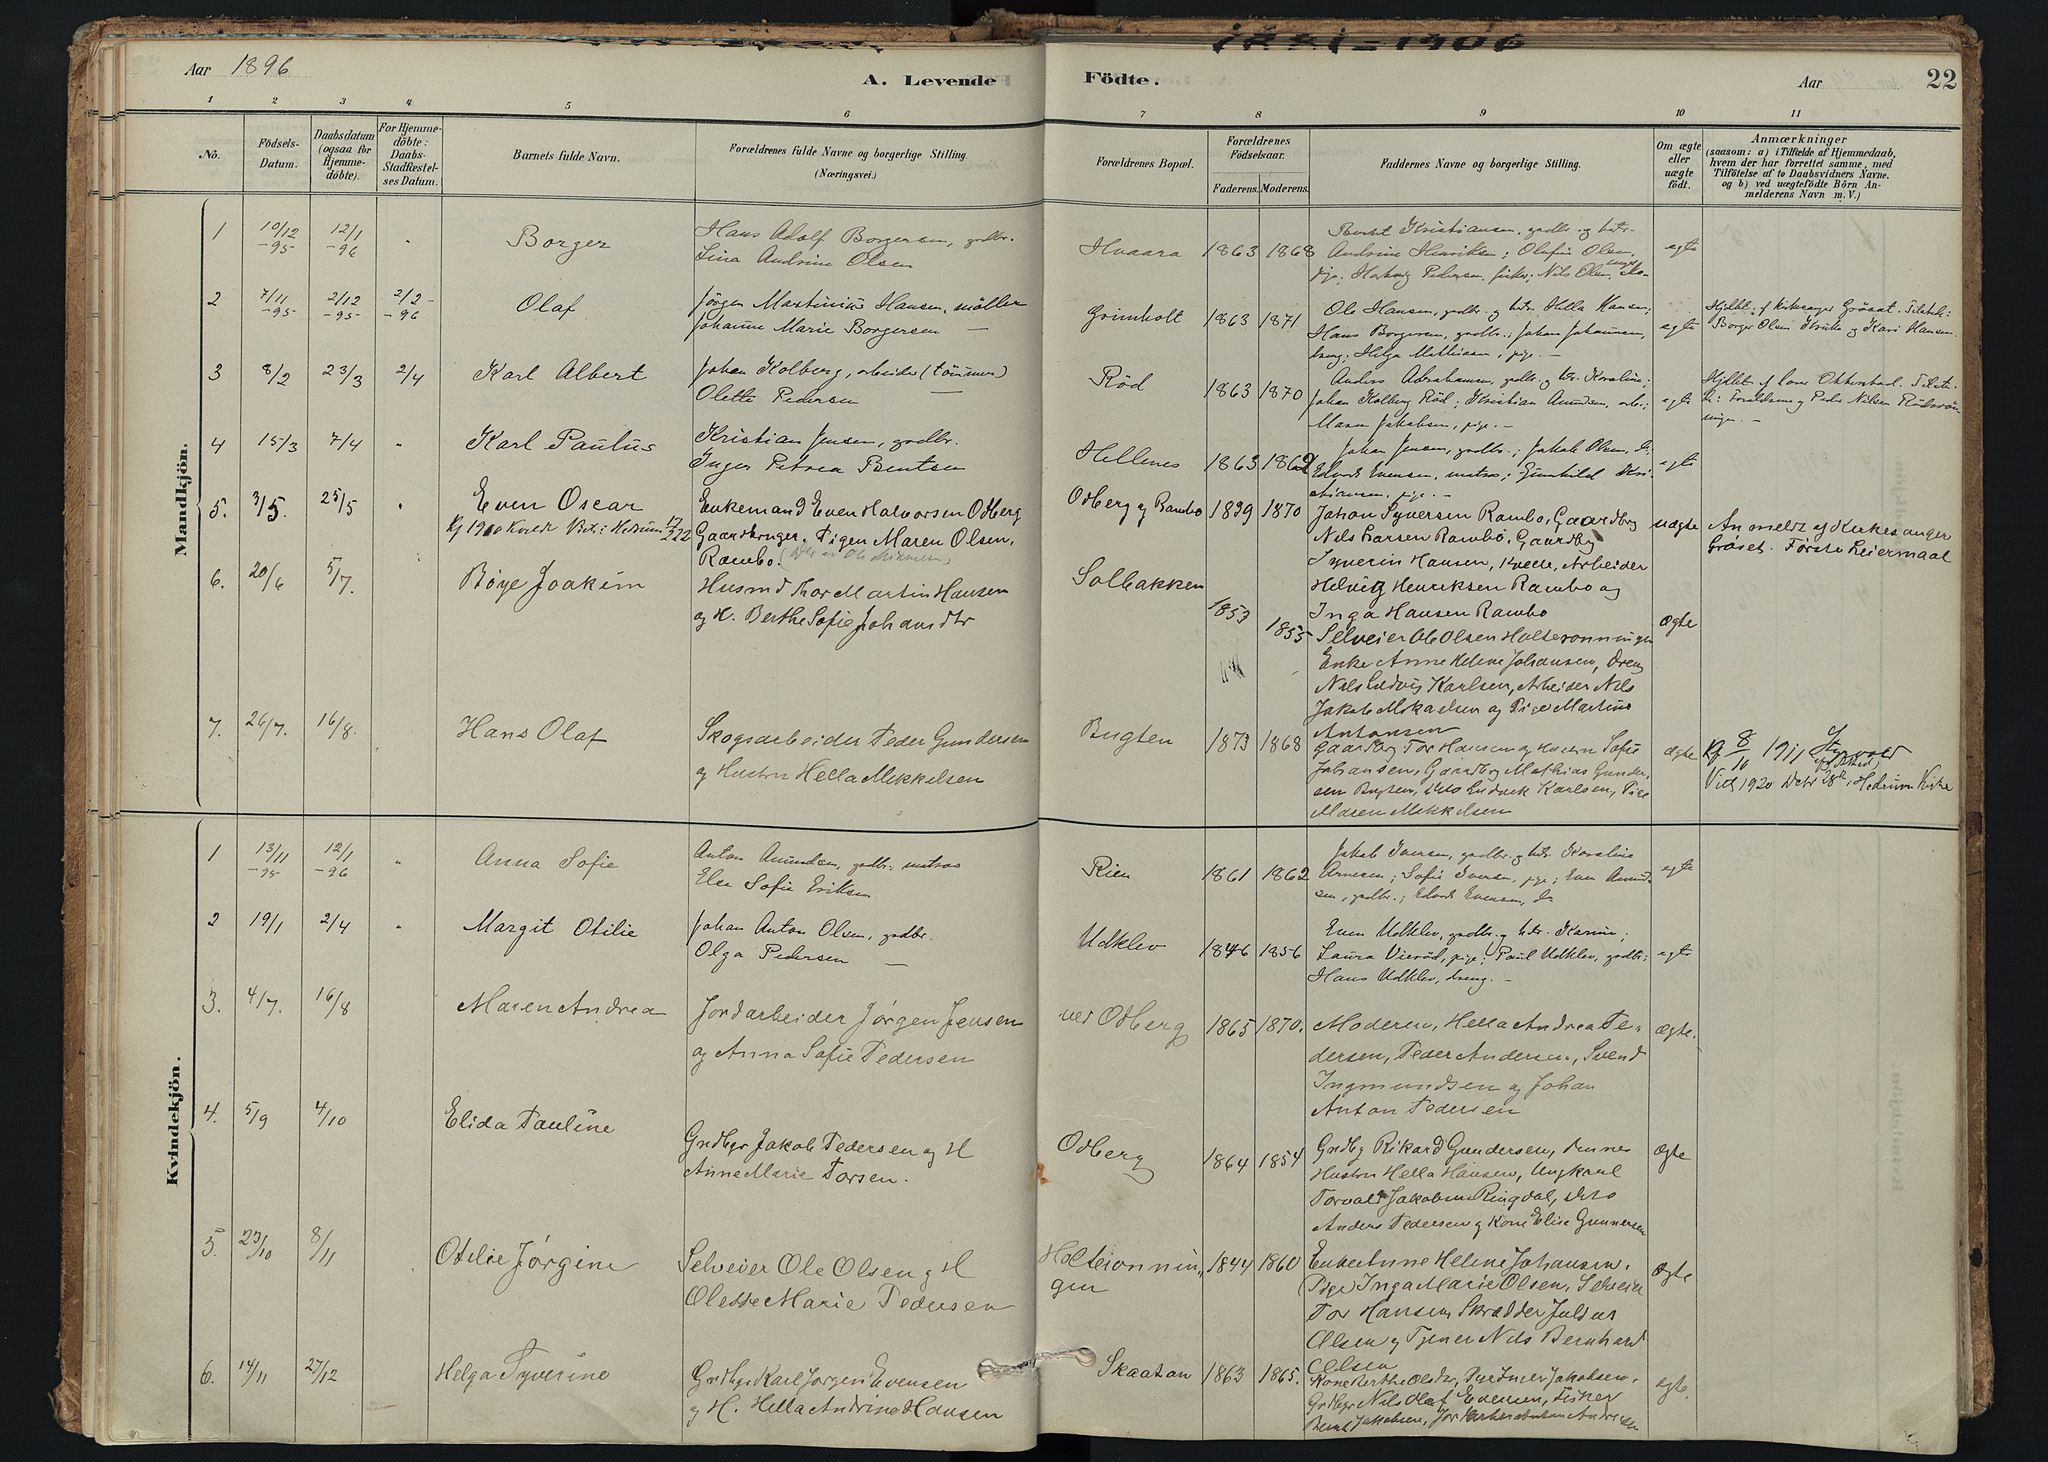 1881-1906
Aar 1896
A. Levende
Födte.
Aar
22
1
2
3
4
5
6
7
8
9
10
11
No.
Födsels-
Datum.
Daabsdatum
(ogsaa for
Hjemme-
döbte).
For Hjemme-
döbte:
Daabs-
Stadfæstel-
ses Datum.
Barnets fulde Navn.
Forældrenes fulde Navne og borgerlige Stilling.
(Næringsvei.)
Forældrenes Bopæl.
Forældrenes
Födselsaar.
Faderens.
Moderens.
Faddernes Navne og borgerlige Stilling.
Om ægte
eller
uægte
födt.
Anmærkninger
(saasom: a) i Tilfælde af Hjemmedaab,
hvem der har forrettet samme, med
Tilföielse af to Daabsvidners Navne.
og b) ved uægtefödte Börn An-
melderens Navn m. V.)
Mandkjön.
1
10/12
-95
12/1
-96
"
Borger
Hans Adolf Borgersen, gadbr.
Lina Andrine Olsen
Hvaara
1863
1868
Bernt Kristiansen, gadbr. og hstr.
Andrine Henriksen; Olufine Olsen,
pige; Hartvig Pedersen, fisker; Nils Olsen,
egte
2
7/11
-95
2/12
-95
2/2
-96
Olaf
Jörgen Martinius Hansen, möller
Johanne Marie Borgersen —
Grimholt
1863
1871
Ole Hansen, gadbr. og hstr. Hella Hansen;
Hans Borgersen, gadbr.; Johan Johannsen,
dreng; Helga Mathisen, pige. —
egte
Hjdöbt af kirksanger Gröset. Tilsted:
Borger Olsen og Kari Hansen
3
8/2
23/3
2/4
Karl Albert
Johan Kolberg, arbeider (tömmer)
Olette Pedersen —
Röd
1863
1870
Anders Abrahamsen, gadbr. og hstr. Karoline;
Johan Kolberg Röd; Kristian Amundsen, arb.;
Maren Jakobsen, pige. —
egte
Hjdöbt af lærer Okkenstad. Tilste-
de: Forældrene og Peder Nilsen Rödsrön-
ningen. —
4
15/3
7/4
"
Karl Paulus
Kristian Jensen, gadbr.
Inger Petrea Bentsen
Hellenes
1863
1869
Johan Jensen, gadbr.; Jakob Olsen, do
Edvard Evensen, matros; Gunhild Kri-
stiansen, pige. —
egte
5.
3/5.
25/5
"
Even Oscar
Enkemand Even Halvorsen Odberg
Gaardbruger. Pigen Maren Olsen,
Rambo.
Odberg og Rambo
1839
1870
Johan Syversen Rambo, Gaardbrg
Nils Larsen Rambo, Gaardbg
Syverin Hansen, Kveile, Arbeider
Helvig Henriksen Rambo og
Inga Hansen Rambo
uægte
Anmeldt af Kirkesanger
Gröset. Förste Leiermaal
6.
20/6
5/7.
Böye Joakim
Husmd Thor Martin Hansen
og H. Berthe Sofie Johansdtr
Solbakken
1853
1855
Selveier Ole Olsen Holteronningen
Enke Anne Helene Johansen, Dreng
Nils Ludvig Karlsen, Arbeider Nils
Jakob Mikaelsen og Pige Martine
Antonsen
Ægte
7.
26/7.
16/8.
Hans Olaf
Skogsarbeider Peder Gundersen
og Hustru Hella Mikkelsen
Bugten
1873
1868
Gaardbg Tor Hansen og Hustru Sofie
Johansen, Gaardbg Mathias Gunder-
sen Bugten, dito Ludvik Karlsen, Pige
Maren Mikkelsen
ægte
Kf 8/10 1911 Styrvold
Vid 1920 Hedrum Kirke
Kvindekjön.
1
13/11
-95
12/1
-96
"
Anna Sofie
Anton Amundsen, gadbr. matros
Else Sofie Eriksen
Rien
1861
1862
Jakob Iversen, gadbr. og hstr. Karoline
Arnesen; Sofie Iversen, pige; Even Amund-
sen, gadbr.; Edvard Evensen, do
egte
2
19/1
2/4
"
Margit Otilie
Johan Anton Olsen, gadbr.
Olga Pedersen —
Udklev
1846
1856
Even Udklev, gadbr. og hstr. Karine;
Laura Vieröd, pige; Paul Udklev, gadbr.;
Hans Udklev, dreng. —
egte
3.
4/7.
16/8
Maren Andrea
Jordarbeider Jörgen Jensen
og Anna Sofie Pedersen
ved Odberg
1865
1870.
Moderen, Hella Andrea Pe-
dersen, Peder Andersen, Svend
Ingmundsen og Johan
Anton Pedersen
Ægte.
4.
5/9
4/10
Elida Pauline
Grdbgr Jakob Pedersen og H
Anne Marie Torsen.
Odberg
1864
1854
Grdbg Rikard Gundersen, dennes
Hustru Hella Hansen, Ungkarl
Torvald Jakobsen Ringdal, dito
Anders Pedersen og Kone Elise Gunnersen
Ægte
5.
23/10
8/11
Otilie Jörgine
Selveier Ole Olsen og H
Olette Marie Pedersen
Holteronnin-
gen
1844
1860
Enke Anne Helene Johansen,
Pige Inga Marie Olsen, Selveier
Tor Hansen, Skrædder Julius
Olsen og Tjener Nils Bernhard
Olsen
Ægte
6.
14/11
27/12
Helga Syverine
Grdbgr Karl Jörgen Evensen
og H. Hella Andrine Hansen
Skaatan
1863
1865.
Kone Berthe Olsdtr, Jakobsen,
Grdbgr Nils Olaf Evensen, Fisker
Bernt Jakobsen, Jordarbeider Anton Andresen
egte.